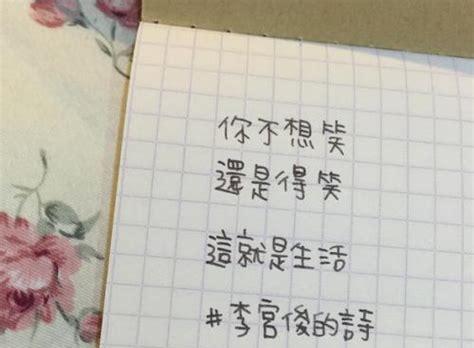 你不想笑
還是得笑
這就是生活
#李宮俊的詩